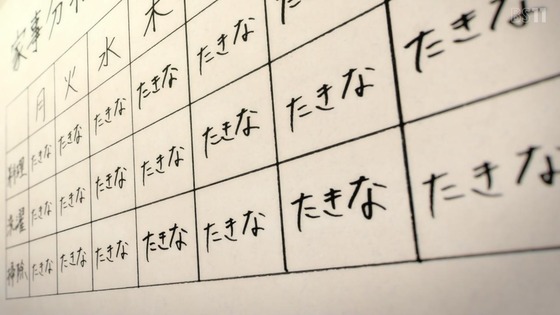 BS11
家事分
月 火 水 木
料理 たきな たきな たきな たきな たきな
洗濯 たきな たきな たきな たきな たきな たきな たきな
掃除 たきな たきな たきな たきな たきな たきな たきな